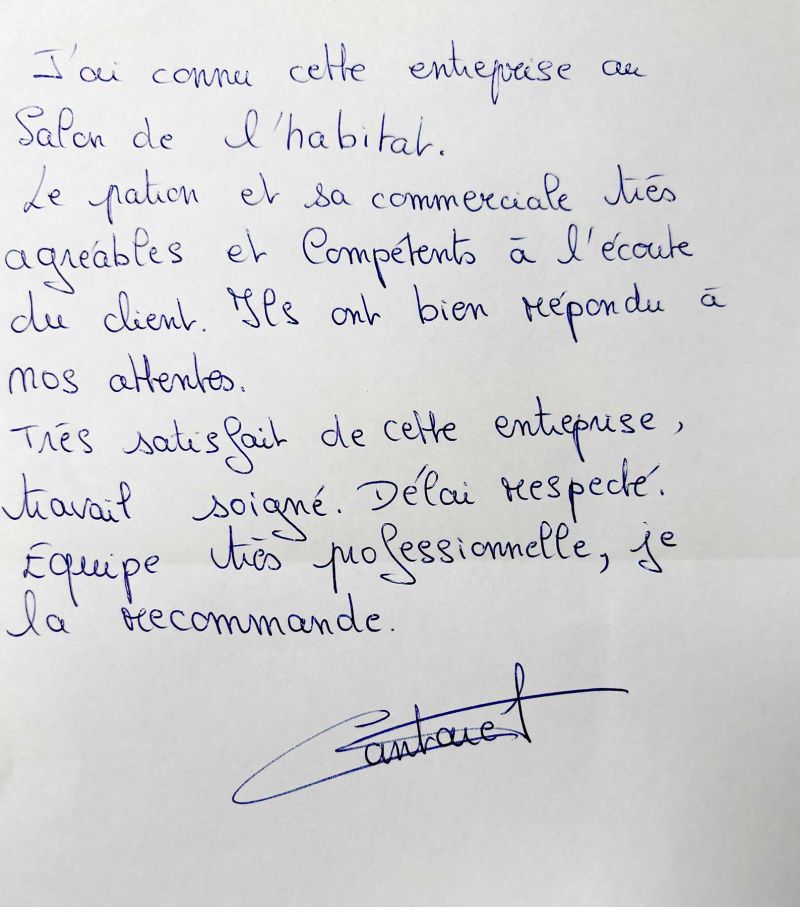 J'ai connu cette entreprise au
Salon de l'habitat.
Le patron et sa commerciale très
agréables et Compétents à l'écoute
du client. Ils ont bien répondu à
nos attentes.
Très satisfait de cette entreprise,
travail soigné. Délai respecté.
Équipe très professionnelle, je
la recommande.